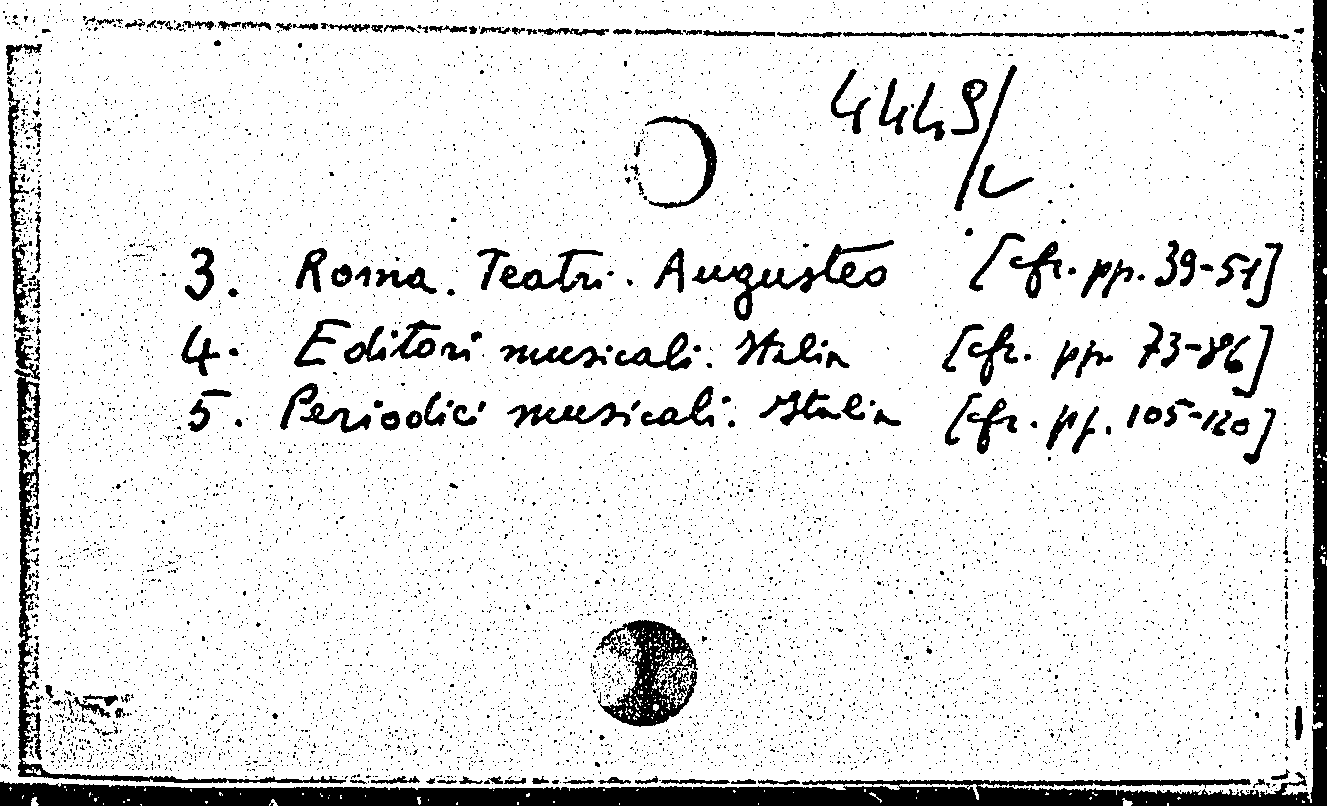 4449/
3. Roma. Teatri. Augusteo [cfr. pp. 39-51]
4. Editori musicali. Italia [cfr. pp. 73-86]
5. Periodici musicali. Italia [cfr. pp. 105-120]